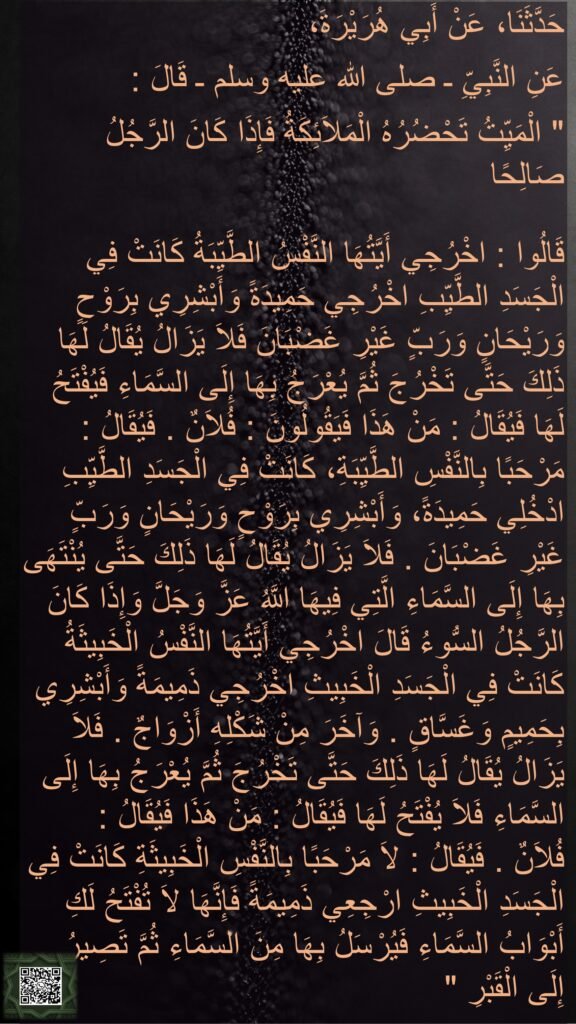 حَدَّثَنَا، عَنْ أَبِي هُرَيْرَةَ،
عَنِ النَّبِيِّ ـ صلى الله عليه وسلم ـ قَالَ :
" الْمَيِّتُ تَحْضُرُهُ الْمَلاَئِكَةُ فَإِذَا كَانَ الرَّجُلُ
صَالِحًا
قَالُوا : اخْرُجِي أَيَّتُهَا النَّفْسُ الطَّيِّبَةُ كَانَتْ فِي
الْجَسَدِ الطَّيِّبِ اخْرُجِي حَمِيدَةً وَأَبْشِرِي بِرَوْحٍ
وَرَيْحَانٍ وَرَبٍّ غَيْرِ غَضْبَانَ فَلاَ يَزَالُ يُقَالُ لَهَا
ذَلِكَ حَتَّى تَخْرُجَ ثُمَّ يُعْرَجُ بِهَا إِلَى السَّمَاءِ فَيُفْتَحُ
لَهَا فَيُقَالُ : مَنْ هَذَا فَيَقُولُونَ : فُلاَنٌ . فَيُقَالُ :
مَرْحَبًا بِالنَّفْسِ الطَّيِّبَةِ، كَانَتْ فِي الْجَسَدِ الطَّيِّبِ
ادْخُلِي حَمِيدَةً، وَأَبْشِرِي بِرَوْحٍ وَرَيْحَانٍ وَرَبٍّ
غَيْرِ غَضْبَانَ . فَلاَ يَزَالُ يُقَالُ لَهَا ذَلِكَ حَتَّى يُنْتَهَى
بِهَا إِلَى السَّمَاءِ الَّتِي فِيهَا اللَّهُ عَزَّ وَجَلَّ وَإِذَا كَانَ
الرَّجُلُ السُّوءُ قَالَ اخْرُجِي أَيَّتُهَا النَّفْسُ الْخَبِيثَةُ
كَانَتْ فِي الْجَسَدِ الْخَبِيثِ اخْرُجِي ذَمِيمَةً وَأَبْشِرِي
بِحَمِيمٍ وَغَسَّاقٍ . وَآخَرَ مِنْ شَكْلِهِ أَزْوَاجٌ . فَلاَ
يَزَالُ يُقَالُ لَهَا ذَلِكَ حَتَّى تَخْرُجَ ثُمَّ يُعْرَجُ بِهَا إِلَى
السَّمَاءِ فَلاَ يُفْتَحُ لَهَا فَيُقَالُ : مَنْ هَذَا فَيُقَالُ :
فُلاَنٌ . فَيُقَالُ : لاَ مَرْحَبًا بِالنَّفْسِ الْخَبِيثَةِ كَانَتْ فِي
الْجَسَدِ الْخَبِيثِ ارْجِعِي ذَمِيمَةً فَإِنَّهَا لاَ تُفْتَحُ لَكِ
أَبْوَابُ السَّمَاءِ فَيُرْسَلُ بِهَا مِنَ السَّمَاءِ ثُمَّ تَصِيرُ
إِلَى الْقَبْرِ "